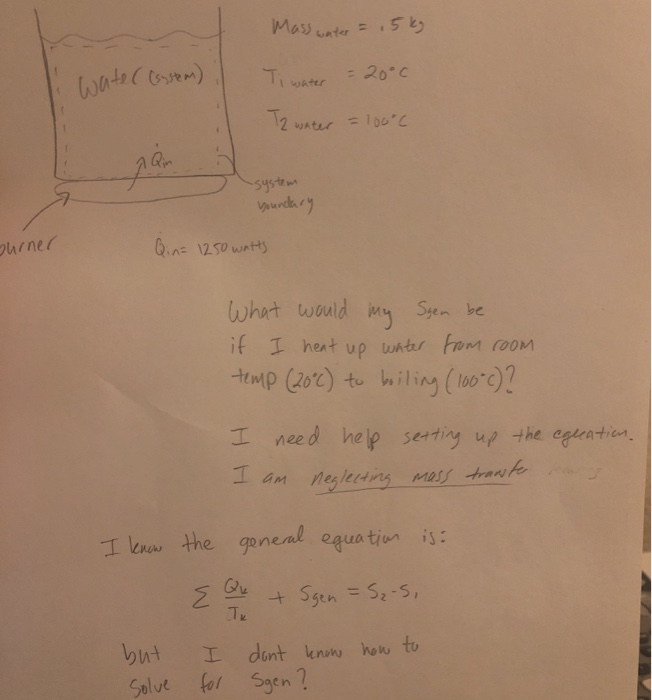 Mass water = .5 kg
Water (system)
T1 water = 20°C
T2 water = 100°C
Q̇in
system
boundary
burner
Q̇in = 1250 watts
What would my Sgen be
if I heat up water from room
temp (20°C) to boiling (100°C)?
I need help setting up the equation.
I am neglecting mass transfe
I know the general equation is:
Σ Qk/Tk + Sgen = S2-S1
but I dont know how to
solve for Sgen?